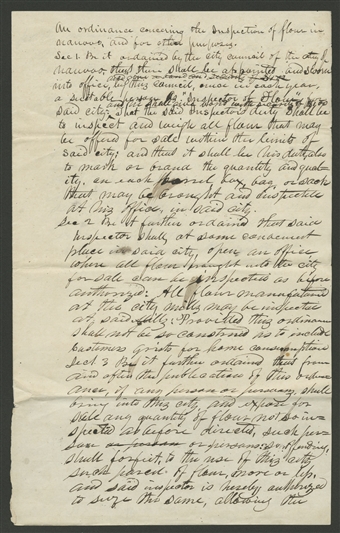 An ordinance concerning the inspection of flour in
Nauvoo, and for other purposes.
Sec 1 Be it ordained by the city council of the city of
Nauvoo, that there shall be appointed and sworn
into office, by this council, once in each year,
a suitable person as "Inspector of Flour" 
said city; that the said Inspectors duty shall be
to inspect and weigh all flour that may
be offered for sale within the limits of
said city; and that it shall be his duty also
to mark or brand the quantity, and qual-
ity, on each barrel, bag, or sack
that may be brought and inspected
at his office, in said city.
Sec 2 Be it further ordained that said
Inspector shall, at some convenient
place in said city, open an office
where all flour brought into the city
for sale shall be inspected as before
authorized: All flour manufactured
at the city mills may be inspected
at said mills: Provided this ordinance
shall not be so construed as to include
customers grists for home consumption
Sect. 3 Be it further ordained that from
and after the publication of this ordin-
ance, if any person or persons, shall
bring into this city, and expose for
sale any quantity of flour not so in-
spected as before directed, such per-
son or persons: so offending,
shall forfeit, to the use of this city
such parcel of flour, more or less,
and said inspector is hereby authorized
to seize the same, allowing the